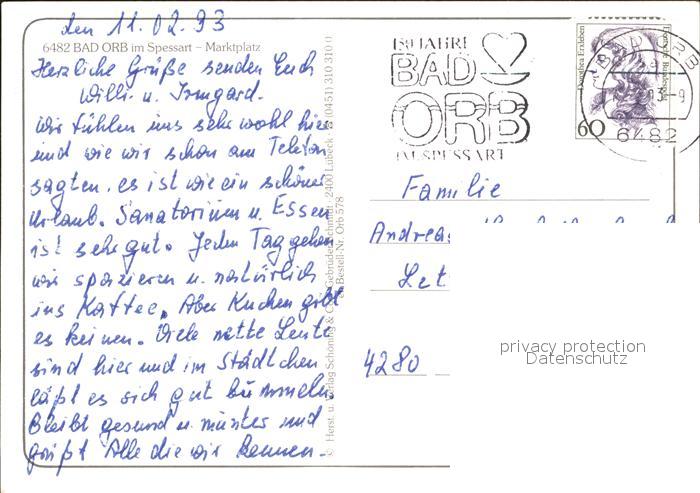 den 11.02.93
6482 BAD ORB im Spessart – Marktplatz
Herzliche Grüße senden Euch
Willi u. Irmgard.
Wir fühlen uns sehr wohl hier
und wie wir schon am Telefon
sagten, es ist wie ein schöner
Urlaub. Sanatorium u. Essen
ist sehr gut. Jeden Tag gehen
wir spazieren u. natürlich
ins Kaffee. Aber Kuchen gibt
es keinen. Viele nette Leute
sind hier und im Städtchen
läßt es sich gut bummeln
Bleibt gesund u. munter und
grüßt Alle die wir kennen.
© Herst. u. Verlag Schöning & Co + Gebrüder Schmidt · 2400 Lübeck · ☎ (0451) 310 310
Bestell-Nr. Orb 578
JAHRE
BAD
ORB
IM SPESSART
Dorothea Erxleben
Deutsche Bundespost
60
BAD ORB
6482
Familie
Andreas
Let
4280
privacy protection
Datenschutz